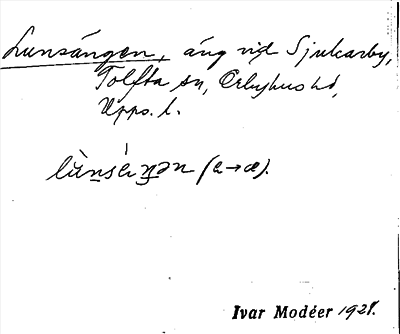 Lunsängen, äng vid Sjukarby,
Tolfta sn, Örbyhus hd,
Upps. l.
lùnsèŋən (e→æ).
Ivar Modéer 1927.